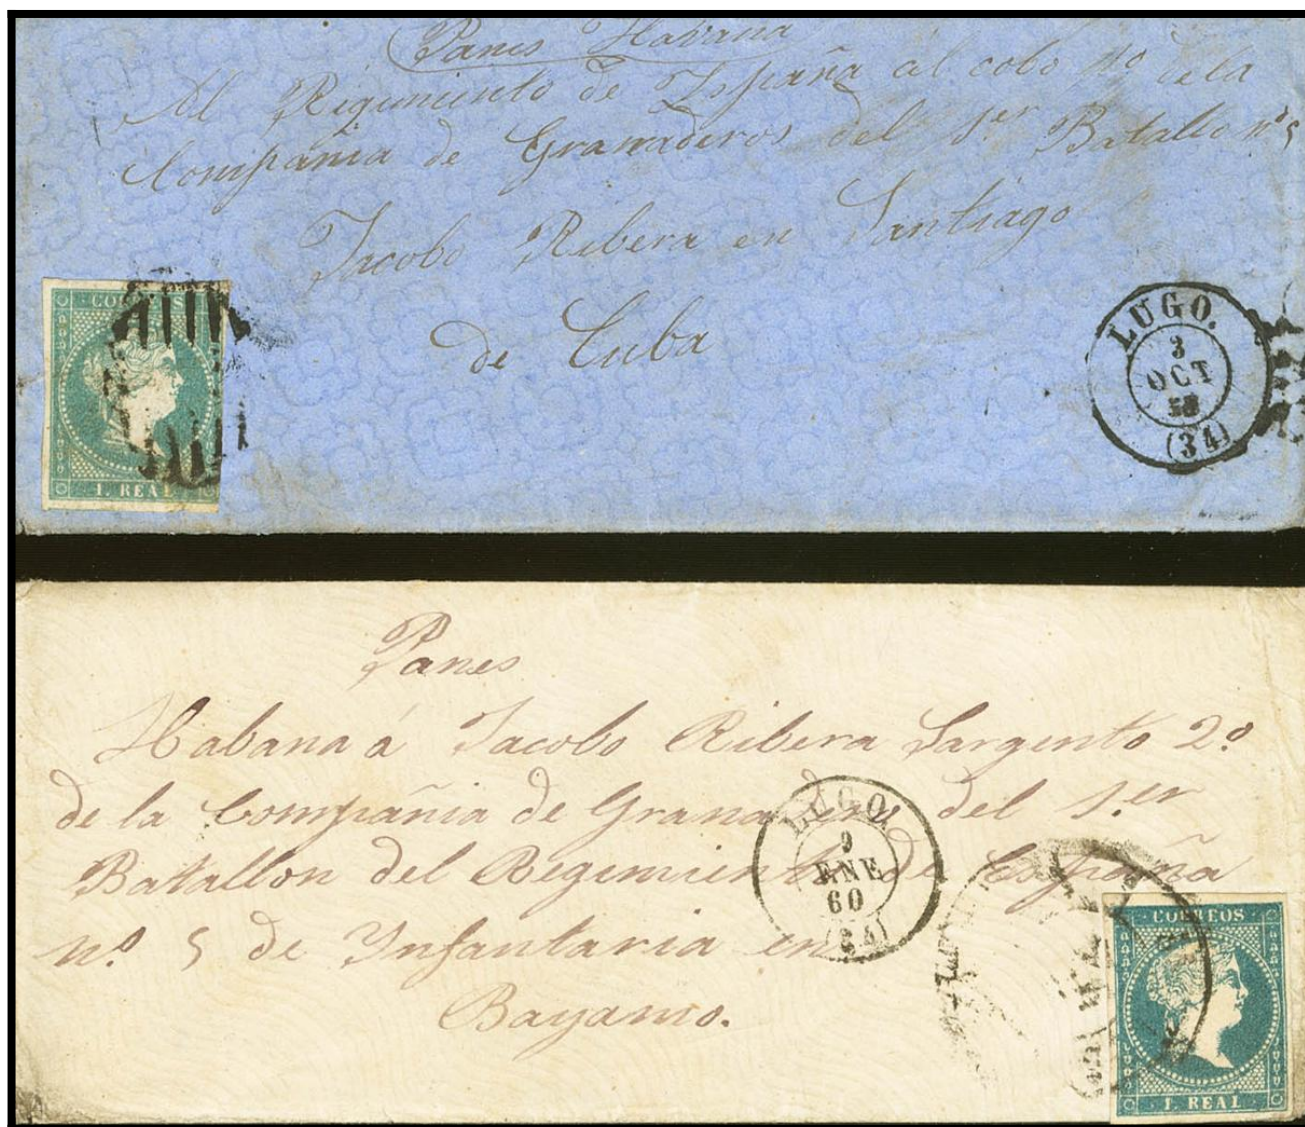 Panes Havana
Al Regimiento de España al cobo 1º de la
Compañia de Granaderos del 1er Batallo nº 5
Jacobo Ribera en Santiago
de Cuba
CORREOS
1. REAL
LUGO.
3
OCT
58
(34)
Panes
Habana á Jacobo Ribera Sargento 2º
de la Compañia de Granaderos del 1.er
Batallon del Regimiento de España
nº 5 de Ynfantaria en
Bayamo.
LUGO.
9
ENE
60
(34)
CORREOS
1. REAL